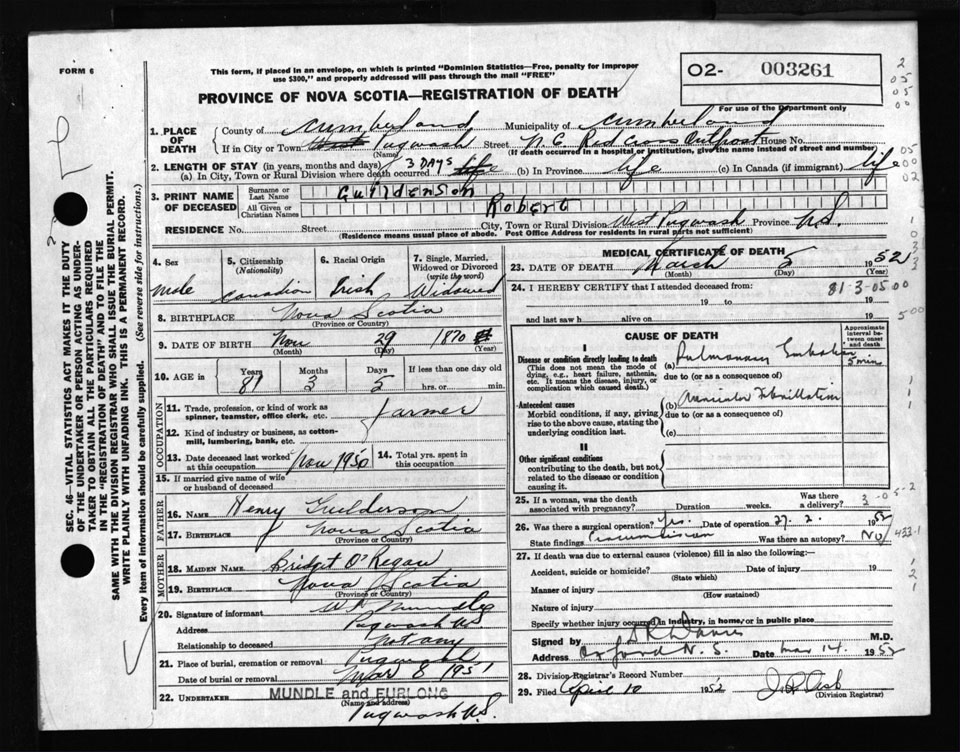 FORM 6
This form, if placed in an envelope, on which is printed "Dominion Statistics—Free, penalty for improper
use $300," and properly addressed will pass through the mail "FREE"
PROVINCE OF NOVA SCOTIA—REGISTRATION OF DEATH
O2- 003261
For use of the Department only
1. PLACE OF DEATH County of Cumberland Municipality of Cumberland
If in City or Town Pugwash Street Red Cross Outpost House No.
(Name) (If death occurred in a hospital or institution, give the name instead of street and number)
2. LENGTH OF STAY (in years, months and days)
(a) In City, Town or Rural Division where death occurred 3 DAYS life (b) In Province life (c) In Canada (if immigrant) life
3. PRINT NAME OF DECEASED Surname or Last Name Guildenson
All Given or Christian Names Robert
RESIDENCE No. Street City, Town or Rural Division West Pugwash Province N.S.
(Residence means usual place of abode. Post Office Address for residents in rural parts not sufficient)
4. Sex male
5. Citizenship (Nationality) Canadian
6. Racial Origin Irish
7. Single, Married, Widowed or Divorced (write the word) Widowed
8. BIRTHPLACE Nova Scotia
(Province or Country)
9. DATE OF BIRTH Nov 29 1870
(Month) (Day) (Year)
10. AGE in Years 81 Months 3 Days 5 If less than one day old hrs. or min.
OCCUPATION
11. Trade, profession, or kind of work as spinner, teamster, office clerk, etc. farmer
12. Kind of industry or business, as cotton-mill, lumbering, bank, etc.
13. Date deceased last worked at this occupation Nov 1950 14. Total yrs. spent in this occupation
15. If married give name of wife or husband of deceased
FATHER
16. NAME Henry Guilderson
17. BIRTHPLACE Nova Scotia
(Province or Country)
MOTHER
18. MAIDEN NAME Bridget O'Regan
19. BIRTHPLACE Nova Scotia
(Province or Country)
20. Signature of informant Mundle
Address Pugwash N.S.
Relationship to deceased not any
21. Place of burial, cremation or removal Pugwash
Date of burial or removal Mar 8 1951
22. UNDERTAKER MUNDLE and FURLONG
(Name and Address)
Pugwash N.S.
MEDICAL CERTIFICATE OF DEATH
23. DATE OF DEATH March 5 1952
(Month) (Day) (Year)
24. I HEREBY CERTIFY that I attended deceased from: 81-3-05.00
19 to 19
and last saw h alive on 19
CAUSE OF DEATH
Approximate interval between onset and death
I
Disease or condition directly leading to death
(This does not mean the mode of dying, e.g., heart failure, asthenia, etc. It means the disease, injury, or complication which caused death.)
(a) Pulmonary Embolism 5 min
due to (or as a consequence of)
Antecedent causes
Morbid conditions, if any, giving rise to the above cause, stating the underlying condition last.
(b) Auricular Fibrillation
due to (or as a consequence of)
(c)
II
Other significant conditions
contributing to the death, but not related to the disease or condition causing it.
25. If a woman, was the death associated with pregnancy? Duration weeks. Was there a delivery? 3-05-2
26. Was there a surgical operation? Yes. Date of operation 27. 2. 1952
State findings Was there an autopsy? No 433-1
27. If death was due to external causes (violence) fill in also the following:—
Accident, suicide or homicide? Date of injury 19
(State which)
Manner of injury
(How sustained)
Nature of injury
Specify whether injury occurred in industry, in home, or in public place
Signed by M.D.
Address Oxford N.S. Date Mar 14. 1952
28. Division Registrar's Record Number
29. Filed April 10 1952
(Division Registrar)
SEC. 46—VITAL STATISTICS ACT MAKES IT THE DUTY
OF THE UNDERTAKER OR PERSON ACTING AS UNDER-
TAKER TO OBTAIN ALL THE PARTICULARS REQUIRED
IN THE "REGISTRATION OF DEATH" AND TO FILE THE
SAME WITH THE DIVISION REGISTRAR WHO SHALL ISSUE THE BURIAL PERMIT.
WRITE PLAINLY WITH UNFADING INK. THIS IS A PERMANENT RECORD.
Every item of information should be carefully supplied. (See reverse side for instructions.)